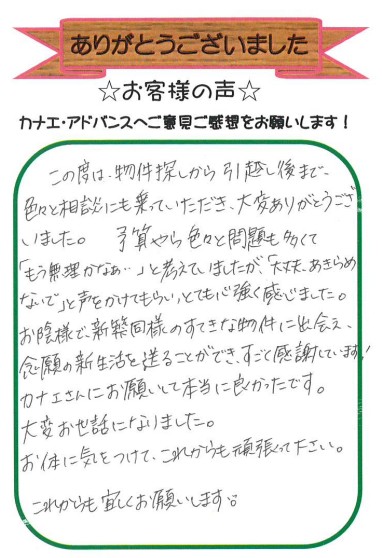 ありがとうございました
☆お客様の声☆
カナエ・アドバンスへご意見ご感想をお願いします！
この度は、物件探しから引越し後まで、
色々と相談にも乗っていただき、大変ありがとうござ
いました。 予算やら色々と問題も多くて
「もう無理かなぁ…」と考えていましたが、「大丈夫、あきらめ
ないで」と声をかけてもらい、とても心強く感じました。
お陰様で新築同様のすてきな物件に出会え、
念願の新生活を送ることができ、すごく感謝しています!!
カナエさんにお願いして本当に良かったです。
大変お世話になりました。
お体に気をつけて、これからも頑張って下さい。
これからも宜しくお願いします。